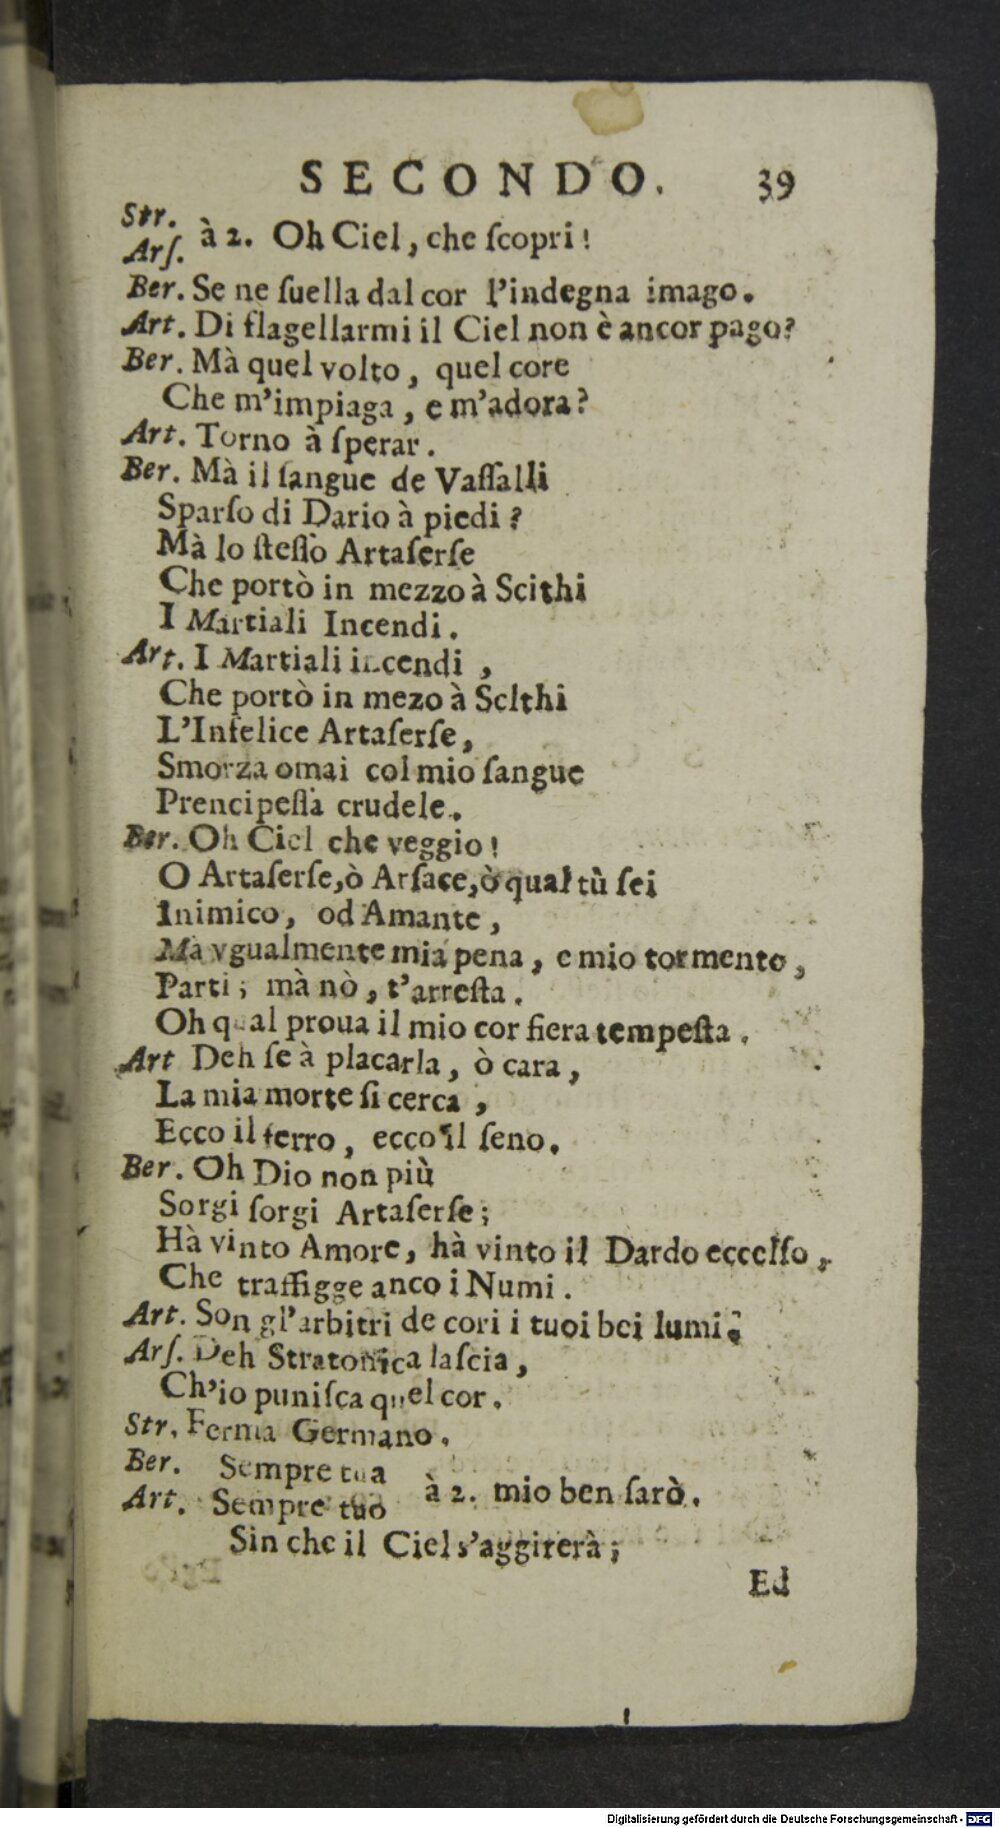 SECONDO. 39
Str.
Arſ. à 2. Oh Ciel, che ſcopri!
Ber. Se ne ſuella dal cor l'indegna imago.
Art. Di flagellarmi il Ciel non è ancor pago?
Ber. Mà quel volto, quel core
Che m'impiaga, e m'adora?
Art. Torno à ſperar.
Ber. Mà il ſangue de Vaſſalli
Sparſo di Dario à piedi?
Mà lo ſteſſo Artaſerſe
Che portò in mezzo à Scithi
I Martiali Incendi.
Art. I Martiali incendi,
Che portò in mezo à Scithi
L'Infelice Artaſerſe,
Smorza omai col mio ſangue
Prencipeſſa crudele.
Ber. Oh Ciel che veggio!
O Artaſerſe, ò Arſace, ò qual tù ſei
Inimico, od Amante,
Mà vgualmente mia pena, e mio tormento,
Parti; mà nò, t'arreſta.
Oh qual proua il mio cor fiera tempeſta.
Art Deh ſe à placarla, ò cara,
La mia morte ſi cerca,
Ecco il ferro, ecco il ſeno.
Ber. Oh Dio non più
Sorgi ſorgi Artaſerſe;
Hà vinto Amore, hà vinto il Dardo eccelſo,
Che traffigge anco i Numi.
Art. Son gl'arbitri de cori i tuoi bei lumi.
Arſ. Deh Stratonica laſcia,
Ch'io puniſca quel cor.
Str. Ferma Germano.
Ber. Sempre tua
Art. Sempre tuo à 2. mio ben ſarò.
Sin che il Ciel s'aggirerà;
Ed
Digitalisierung gefördert durch die Deutsche Forschungsgemeinschaft - DFG